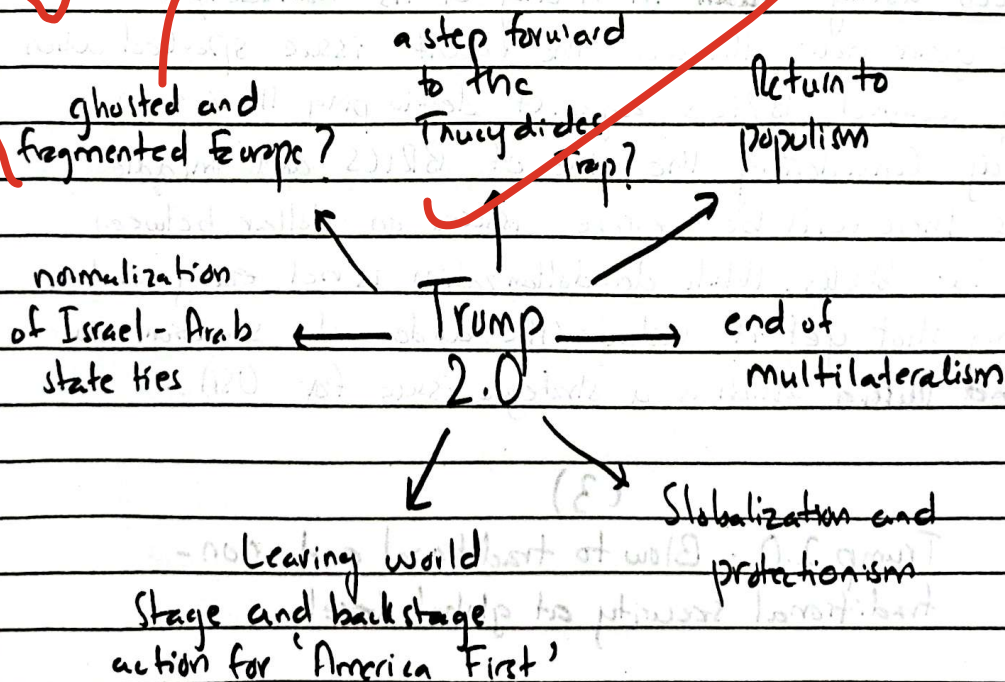 ghosted and
fragmented Europe?
a step forward
to the
Thucydides
Trap?
Return to
populism
normalization
of Israel-Arab
state ties
Trump
2.0
end of
multilateralism
Leaving world
Stage and backstage
action for 'America First'
Slobalization and
protectionism